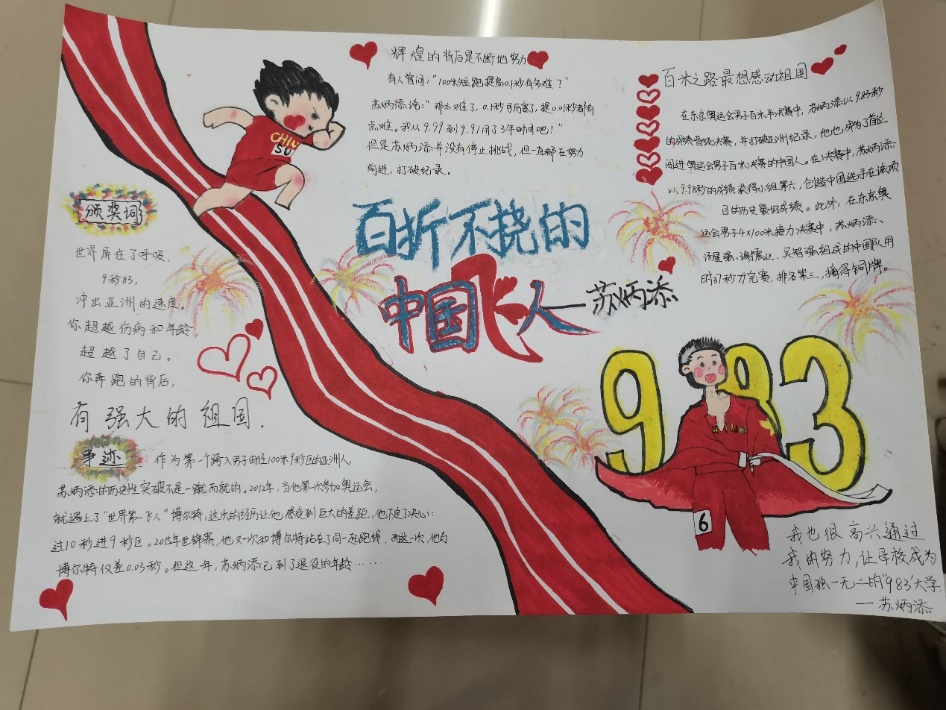 辉煌的背后是不断地努力
有人曾问："100米短跑提高0.1秒有多难？"
苏炳添说："那太难了，0.1秒可厉害了，提0.01秒都有
点难。我从9.99到9.91用了3年时间吧！"
但是苏炳添并没有停止挑战，但一直都在努力
前进，打破纪录。
百米之路最想感动祖国
在东京奥运会男子百米半决赛中，苏炳添以9.83秒
的成绩晋级决赛，并打破亚洲纪录，他也成为了首位
闯进奥运会男子百米决赛的中国人。在决赛中，苏炳添
以9.98秒的成绩获得小组第六，创造中国选手在该项
目的历史最好成绩。此外，在东京奥
运会男子4×100米接力决赛中，苏炳添、
汤星强、谢震业、吴智强组成的中国队用
时37秒79完赛，排名第三，摘得铜牌。
CHIN
SU
百折不挠的
中国飞人—苏炳添
颁奖词
世界屏住了呼吸，
9秒83，
冲出亚洲的速度，
你超越伤病和年龄
超越了自己。
你奔跑的背后，
有强大的祖国.
事迹
作为第一个跨入男子田径100米9秒区的亚洲人
苏炳添的历史性突破不是一蹴而就的，2012年，当他第一次参加奥运会，
就遇上了"世界第一飞人"博尔特，这次的经历让他感受到巨大的差距，他下定了决心：
过10秒进9秒区。2015年世锦赛，他又一次和博尔特站在了同一起跑线，而这一次，他与
博尔特仅差0.03秒。但这一年，苏炳添已到了退役的年龄……
983
6
我也很高兴通过
我的努力，让母校成为
中国独一无二的"983"大学
—苏炳添